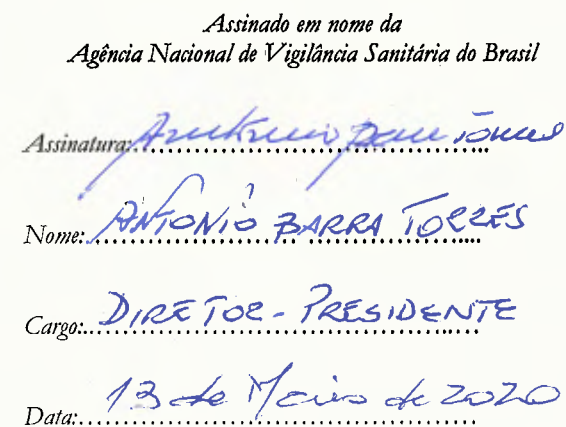 Assinado em nome da
Agência Nacional de Vigilância Sanitária do Brasil
Assinatura: Antonio Barra Torres
Nome: ANTONIO BARRA TORRES
Cargo: DIRETOR-PRESIDENTE
Data: 13 de Maio de 2020